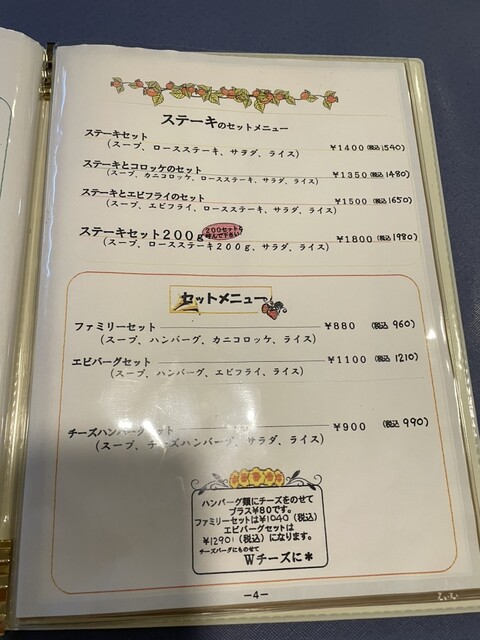 ステーキのセットメニュー
ステーキセット ¥1400(税込1540)
(スープ、ロースステーキ、サラダ、ライス)
ステーキとコロッケのセット ¥1350(税込1480)
(スープ、カニコロッケ、ロースステーキ、サラダ、ライス)
ステーキとエビフライのセット ¥1500(税込1650)
(スープ、エビフライ、ロースステーキ、サラダ、ライス)
ステーキセット200g 200セットと ¥1800(税込1980)
呼んで下さい
(スープ、ロースステーキ200g、サラダ、ライス)
セットメニュー
ファミリーセット ¥880 (税込 960)
(スープ、ハンバーグ、カニコロッケ、ライス)
エビバーグセット ¥1100 (税込 1210)
(スープ、ハンバーグ、エビフライ、ライス)
チーズハンバーグセット ¥900 (税込 990)
(スープ、チーズハンバーグ、サラダ、ライス)
ハンバーグ類にチーズをのせて
プラス¥80です。
ファミリーセットは¥1040(税込)
エビバーグセットは
¥1290(税込)になります。
チーズバーグにものせて
Wチーズに*
-4-